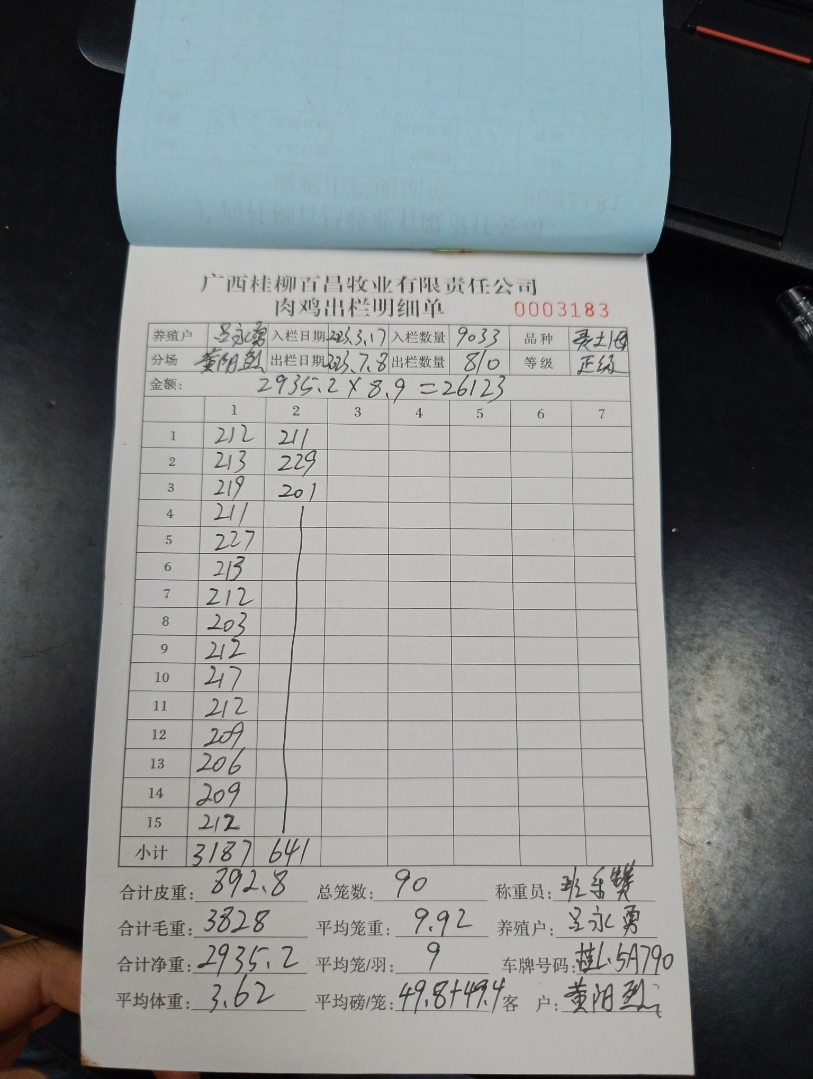 广西桂柳百昌牧业有限责任公司
肉鸡出栏明细单 0003183
养殖户 吕永勇 入栏日期 2023.3.17 入栏数量 9033 品种
分场 黄阳 出栏日期 2023.7.8 出栏数量 810 等级 正级
金额: 2935.2×8.9=26123
1 2 3 4 5 6 7
1 212 211
2 213 229
3 219 201
4 211
5 227
6 213
7 212
8 203
9 212
10 217
11 212
12 209
13 206
14 209
15 212
小计 3187 641
合计皮重: 892.8 总笼数: 90 称重员:
合计毛重: 3828 平均笼重: 9.92 养殖户: 吕永勇
合计净重: 2935.2 平均笼/羽: 9 车牌号码: 桂L.5A790
平均体重: 3.62 平均磅/笼: 49.8+49.4 客 户: 黄阳